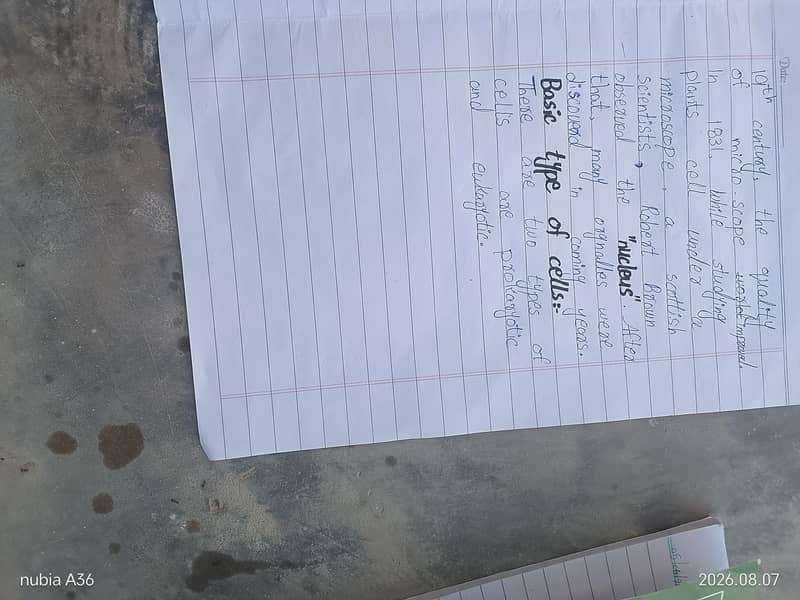 Date:
19th century, the quality
of micro scope improved.
In 1831, while studying
plants cell under a
microscope, a scottish
scientists, Robert Brown
observed the "nucleus". After
that, many orgnalles were
discoverd in coming years.
Basic type of cells:-
There are two types of
cells are prokaryotic
and eukaryotic.
nubia A36
2026.08.07